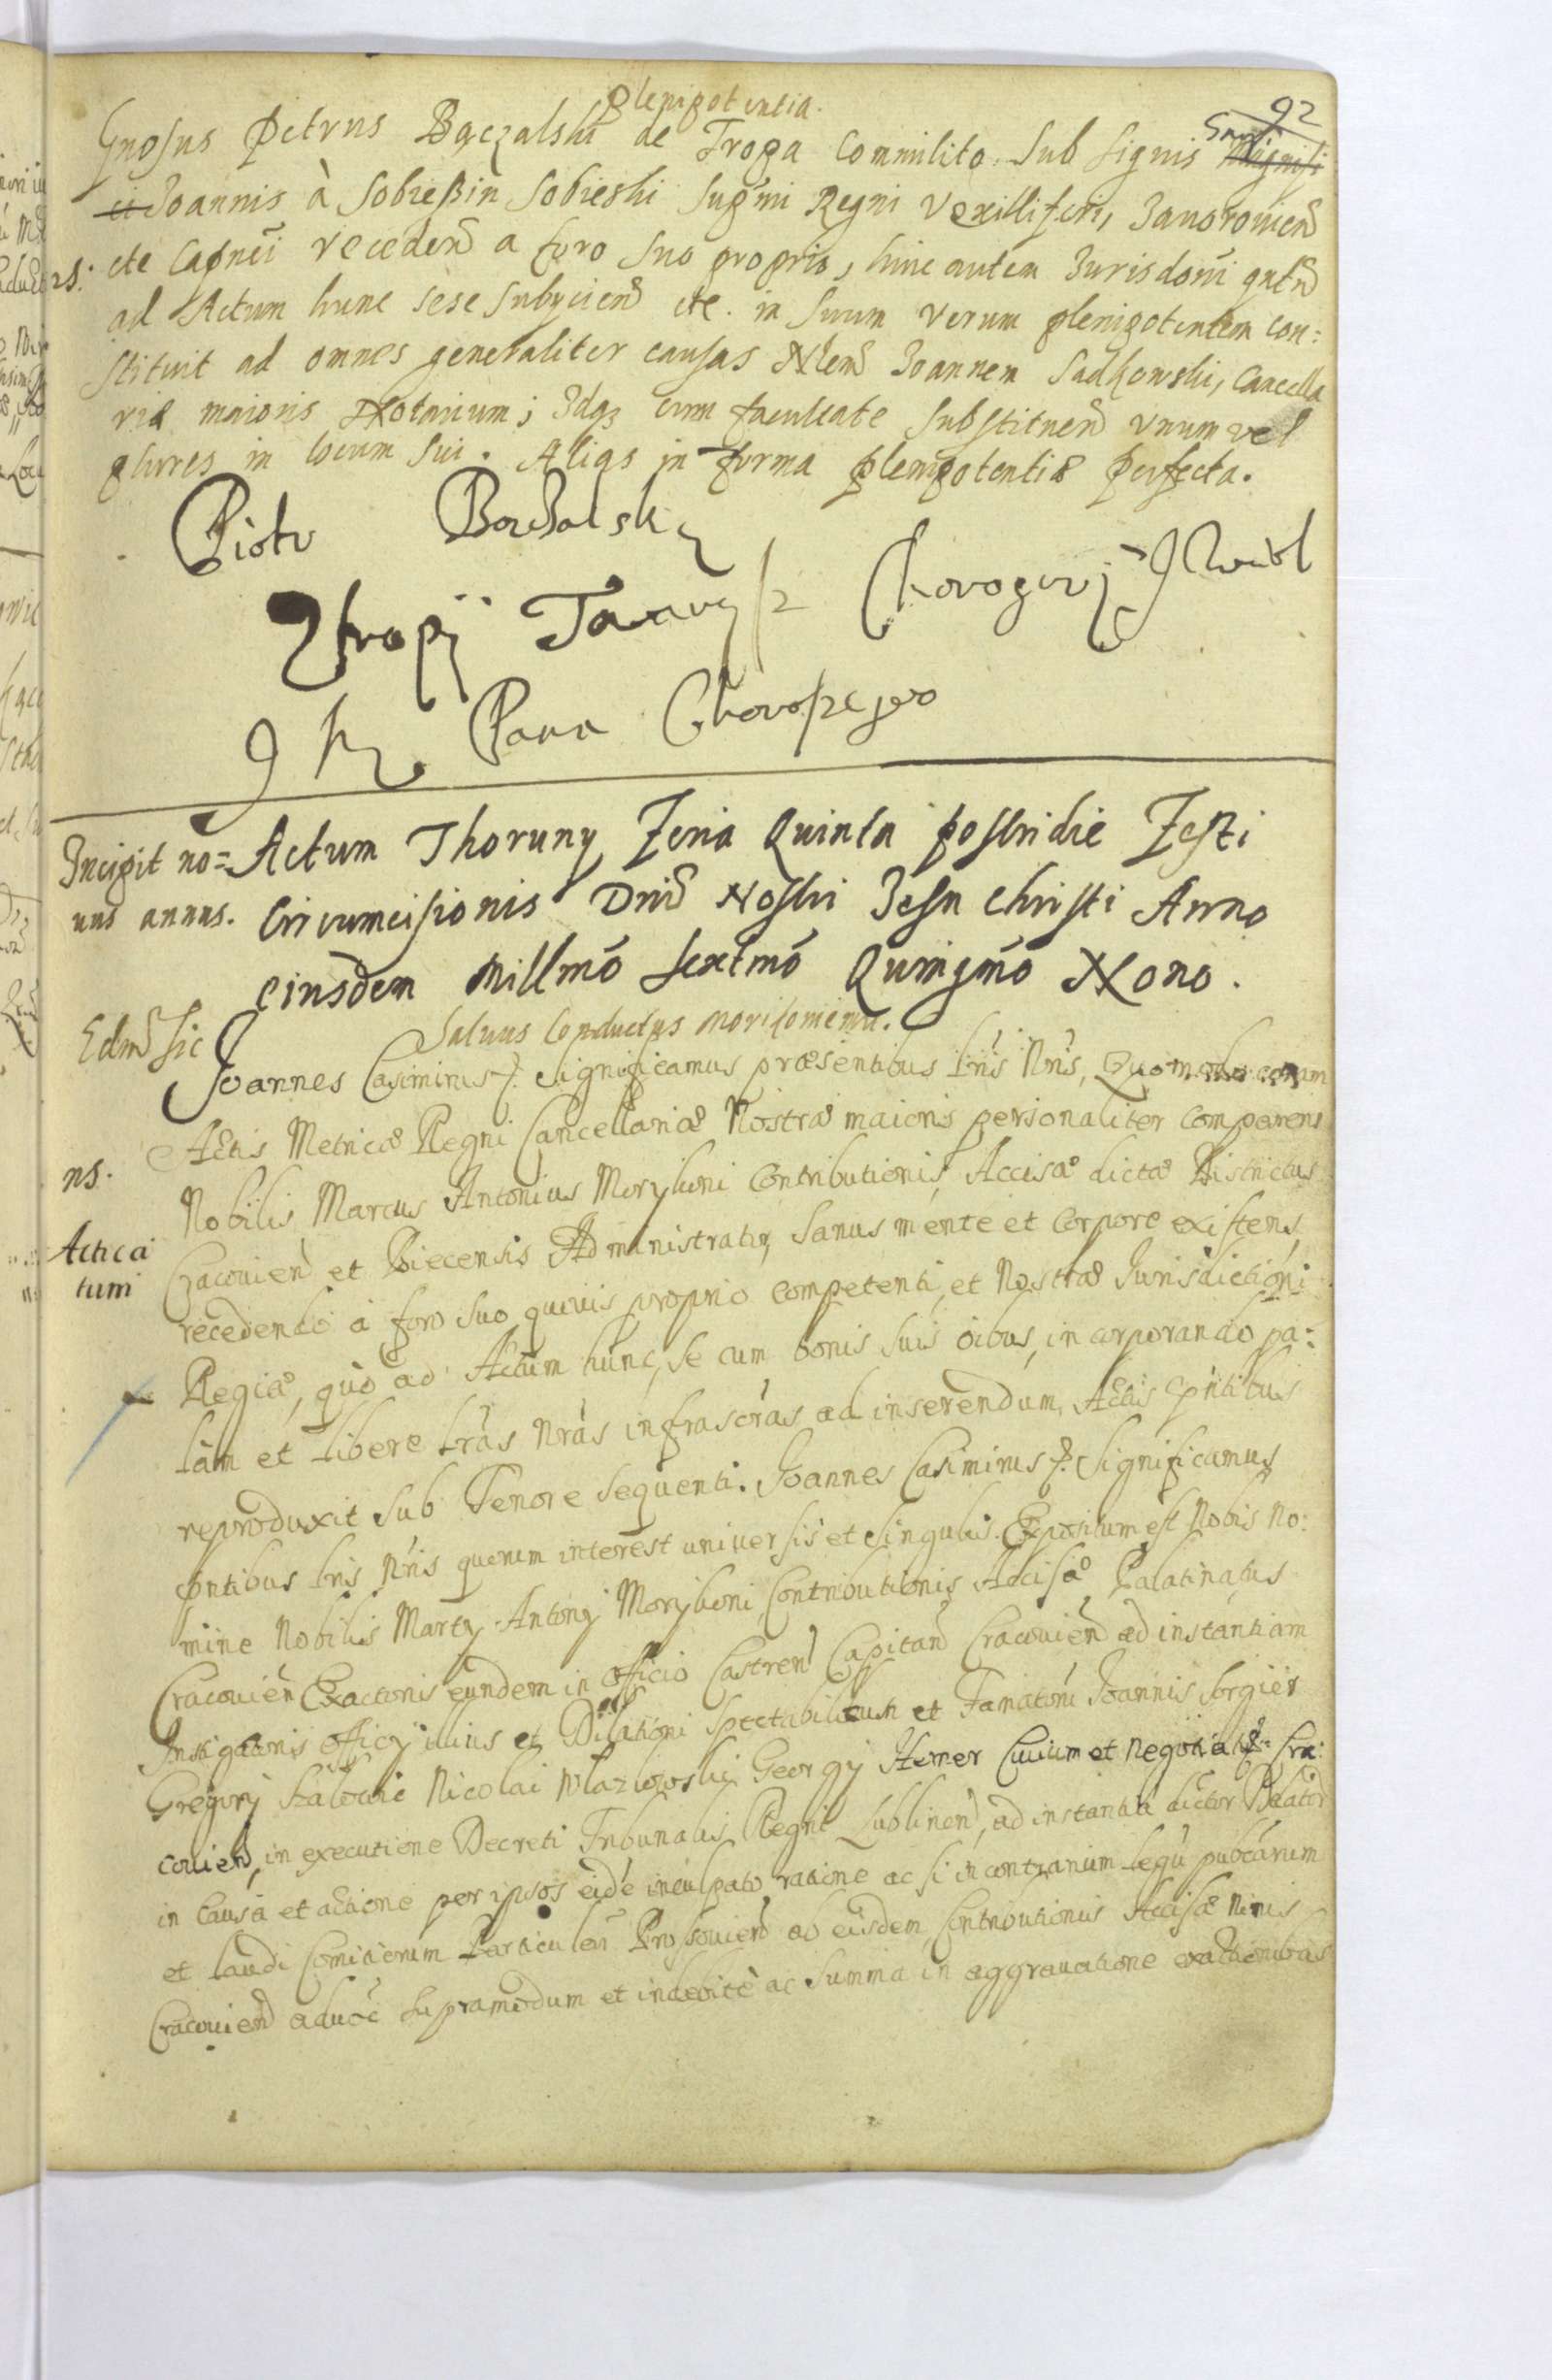 92
plenipotentia.
Gnosus Petrus Bączalski de Tropa Commilito sub signis Gnosi
Joannis à Sobieszin Sobieski Supmi Regni Vexilliferi, Janorovien
etc Capnei recedend a foro suo proprio, huic autem Jurisdoni qntd
ad Actum hunc sese subyciend etc. in suum verum plenipotentem con=
stituit ad omnes generaliter causas Nlem Joannem Sadkowski, Cancella
riæ maioris Notarium; Idq3 cum facultate substituend vnum vel
plures in locum sui. Aliqs in forma plenipotentiæ perfecta.
Piotr
Pana Chorążego
Incipit no=
uus annus.
Actum Thoruny Feria Quinta postridie Festi
Circumcisionis Dni Nostri Jesu Christi Anno
eiusdem Millmo sextmo Quinqmo Nono.
Salvus Conductus Moriconiemu.
Joannes Casimirus etc. Significamus præsentibus Lris Nris, Quomodo coram
Actis Metricæ Regni Cancellariæ Nostræ maioris personaliter comparens
ns. Nobilis Marcus Antonius Moryconi Contributionis Accisæ dictæ Districtus
Actica
tum
Cracouien et Biecensis Administrator, sanus mente et corpore existens,
recedendo à foro suo quouis proprio competenti, et Nostræ Jurisdictioni
Regiæ, quò ad Actum hunc, se cum bonis suis oibus, incorporando pa=
lam et libere Lras Nras infrascras ad inserendum Actis pntibus
reproduxit sub Tenore sequenti. Joannes Casimirus etc. Significamus
pntibus Lris Nris quorum interest uniuersis et singulis. Expositum est Nobis no=
mine Nobilis Marcy Antony Moryconi Contributionis Accisæ Palatinatus
Cracouien Exactoris eundem in officio Castren Capitan Cracouien ad instantiam
Instigatoris officy illius et Dilationi spectabilium et Famatorū Joannis
Gregory Nicolai Georgy Hemer Ciuium et Negotiat Cra=
couien, in executione Decreti Tribunalis Regni Lublinen, ad instantia dictor Delator
in causa et actione per ipsos eidē inculpato, ratione ac si in contrarium legū publicarum
et laudi Comitiorum Particulari Proszouien ab eiusdem Contributionis Accisæ
Cracouien supramodum et indebitè ac summa in aggrauatione exactionibus